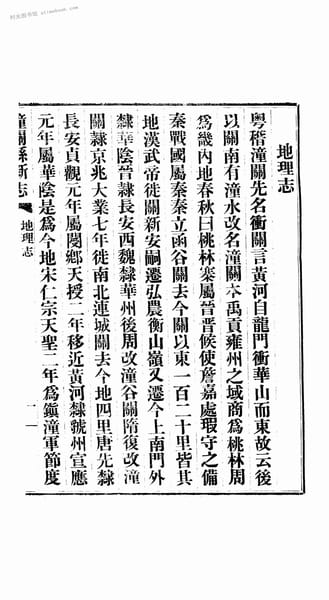 地理志
粤稽潼關先名衝關言黃河自龍門衝華山而東故云後
以關南有潼水改名潼關本禹貢雍州之域商爲桃林周
爲畿內地春秋曰桃林塞屬晉晉侯使詹嘉處瑕守之備
秦戰國屬秦秦立函谷關去今關以東一百二十里皆其
地漢武帝徙關新安嗣遷弘農衡山嶺又遷今上南門外
隸華陰晉隸長安西魏隸華州後周改潼谷關隋復改潼
關隸京兆大業七年徙南北連城關去今地四里唐先隸
長安貞觀元年屬閿鄉天授二年移近黃河隸虢州宣應
元年屬華陰是爲今地宋仁宗天聖二年爲鎭潼軍節度
潼關縣新志
地理志
一